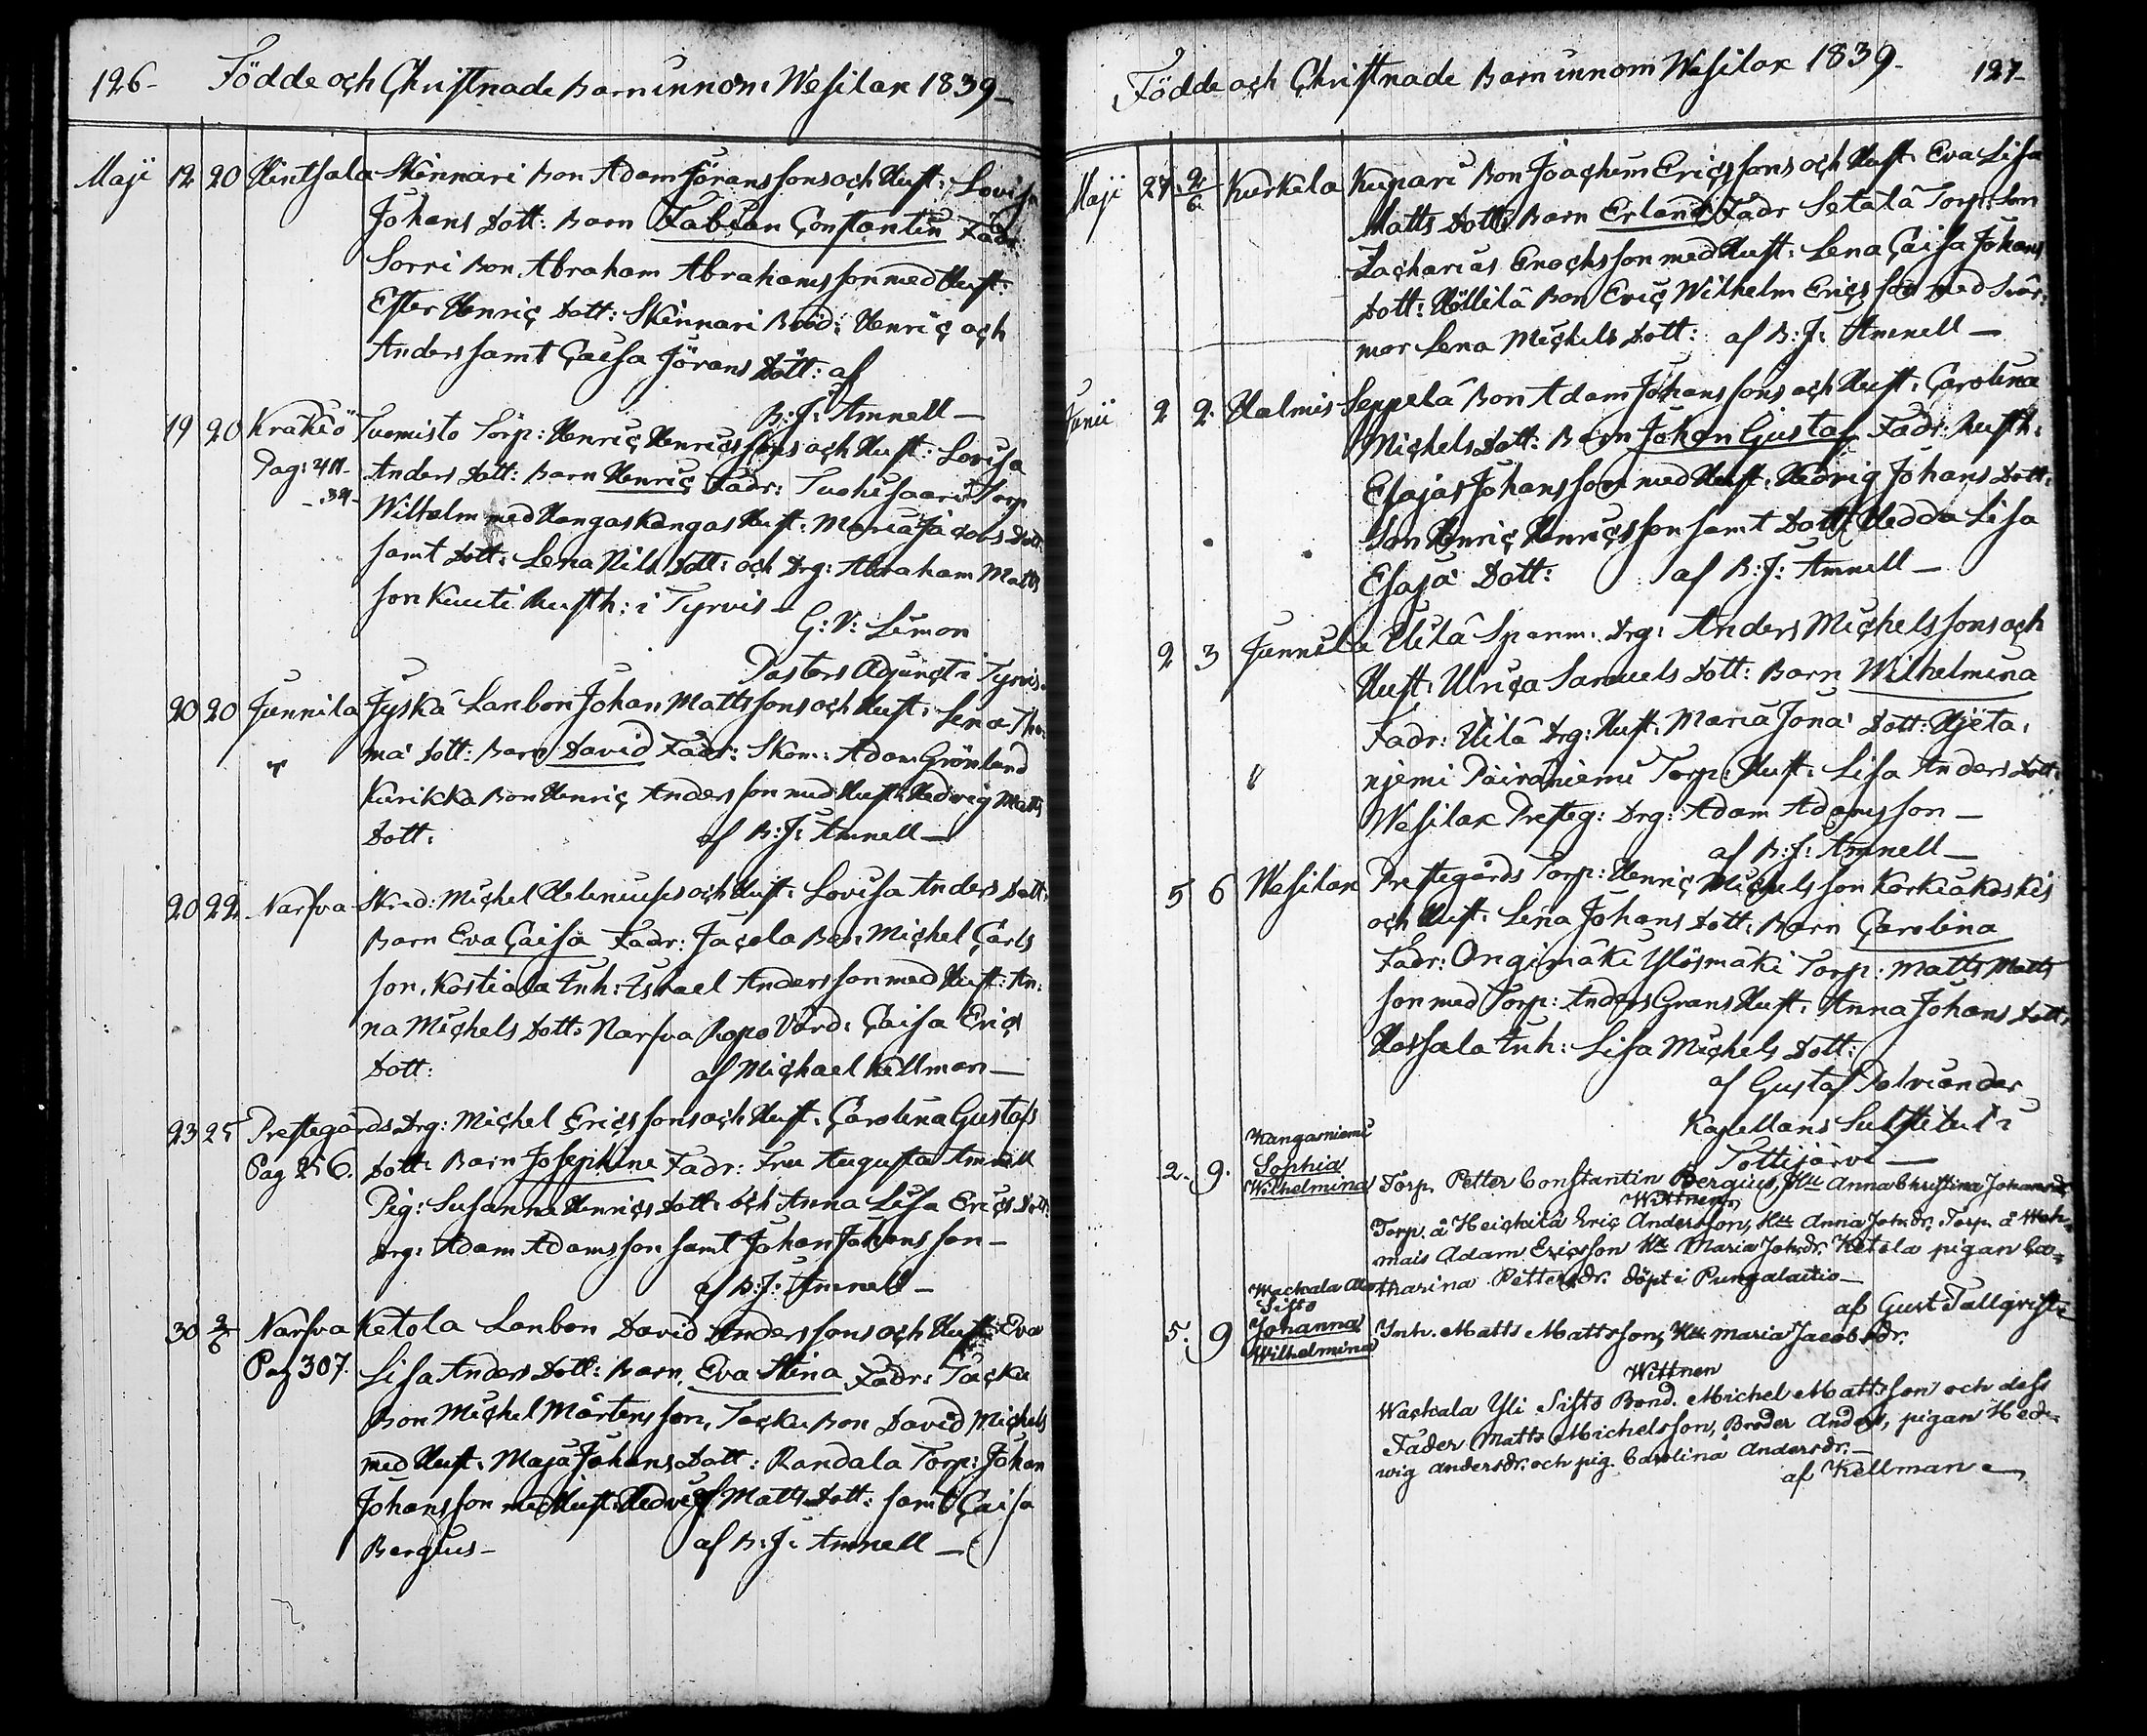 126- Födde och Christnade Barn innom Wesilax 1839-
Maji 12 20 Hintsala Skinnari Bon Adam Jöranssons och Hust: Lovisa
Johans dott: Barn Fabian Constantin Fadr:
Sorri Bon. Abraham Abrahamsson med Hust:
Ester Henric dott: Skinnari Bröd: Henric och
Anders samt Caisa Jörans dott: af
B:J: Amnell-
19 20 Krakiö Tuomisto Torp: Henric Henricssons och Hust: Lovisa
Pag: 411- Anders dott: Barn Henric Fadr: Tuohisaari Torp
-39- Wilhelm med Kangaskangas Hust: Maria Jacobs Dott:
samt dott: Lena Nils dott: och Drg: Abraham Matts
son Knuuti Rusth: i Tyrvis-
G: V: Limon
Pastors Adjunct i Tyrvis.
20 20 Junnila Jyskä Lanbon Johan Mattssons och Hust: Lena Tho-
mä dott: Barn David Fadr: Skom: Adam Grönlund
Kurikka Bon Henric Andersson med Hust: Hedvig Matts
dott: af B:J: Amnell-
20 22 Narfva Skrad: Michel Heleniuses och Hust: Lovisa Anders Dott:
Barn Eva Caisa Fadr: Jacola Bon: Michel Carls
son, Kostiala Inh: Israel Andersson med Hust: An-
na Michels Dott: Narfva Ropo Värd: Caisa Erics
dott: af Michael Kellman-
23 25 Prestegårds Drg: Michel Ericssons och Hust: Carolina Gustafs
Pag 256. dott: Barn Josephina Fadr: Fru Augusta Amnell
Pig: Susanna Henrics dott: och Anna Lisa Erics Dott:
Drg: Adam Adamsson samt Johan Johansson-
af B:J: Amnell-
30 2/6 Narfva Ketola Lanbon David Anderssons och Hust: Eva
Pag 307. Lisa Anders Dott: Barn Eva Stina Fadr: Tacku
Bon Michel Mårtensson, Tacku Bon David Michels
med Hust: Maja Johans Dott: Randala Torp: Johan
Johansson med Hust: Hedvig Matts dott: samt Caisa
Bergius- af B:J: Amnell-
Födde och Christnade Barn innom Wesilax 1839- 127-
Maji 27 2/6 Kurkela Kupari Bon Joachim Ericssons och Hust: Eva Lisa
Matts Dott: Barn Erland Fadr Setälä Torp: Son
Zacharias Enochsson med Hust: Lena Caisa Johans
dott: Höllilä Bon Eric Wilhelm Ericsson med Svär-
mor Lena Michels Dott: af B:J: Amnell-
Junii 2 2 Halmis Seppelä Bon Adam Johanssons och Hust: Carolina
Michels dott: Barn Johan Gustaf Fadr: Rusth:
Esajas Johansson med Hust: Hedvig Johans dott:
Son Henric Henricsson samt Dott: Hedda Lisa
Esajä Dott: af B:J: Amnell-
2 3 Junnila Uilä Spanm: Drg: Anders Michelssons och
Hust: Ulrica Samuels dott: Barn Wilhelmina
Fadr: Uilä Drg: Hust: Maria Jonä Dott: Hjeta-
njemi Päiväniemi Torp: Hust: Lisa Anders dott:
Wesilax Presteg: Drg: Adam Adamsson-
af B:J: Amnell-
5 6 Wesilax Prestegårds Torp: Henric Michelsson Korkiakoskis
och Hust: Lena Johans dott: Barn Carolina
Fadr: Ongimäki Ylösmäki Torp: Matts Matts
son med Torp: Anders Grans Hust: Anna Johans dott:
Hossala Inh: Lisa Michels dott:
af Gustaf Polviander
Kapellans Substitut i
Tottijärvi-
Kangasniemi
2. 9. Sophia
Wilhelmina Torp. Petter Constantin Bergius, Hu Anna Christina Johansdr
Wittnen
Torp. å Heickilä Eric Andersson, Hu Anna Joh:dr. Torp. å Weh-
mais Adam Ericsson Hu Maria Joh:dr. Ketola pigan Ca-
tharina Pettersdr. döpt i Pungalaitio-
af Gust: Tallqvist
Wackala Ala
Sifto
5. 9 Johanna Inh. Matts Mattsson, Hu Maria Jacobsdr.
Wilhelmina
Wittnen
Wackala Yli Sifto Bond. Michel Mattsson och dess
Fader Matts Michelsson, Broder Anders, pigan Hed-
wig Andersdr. och pig. Carolina Andersdr.-
af Kellman